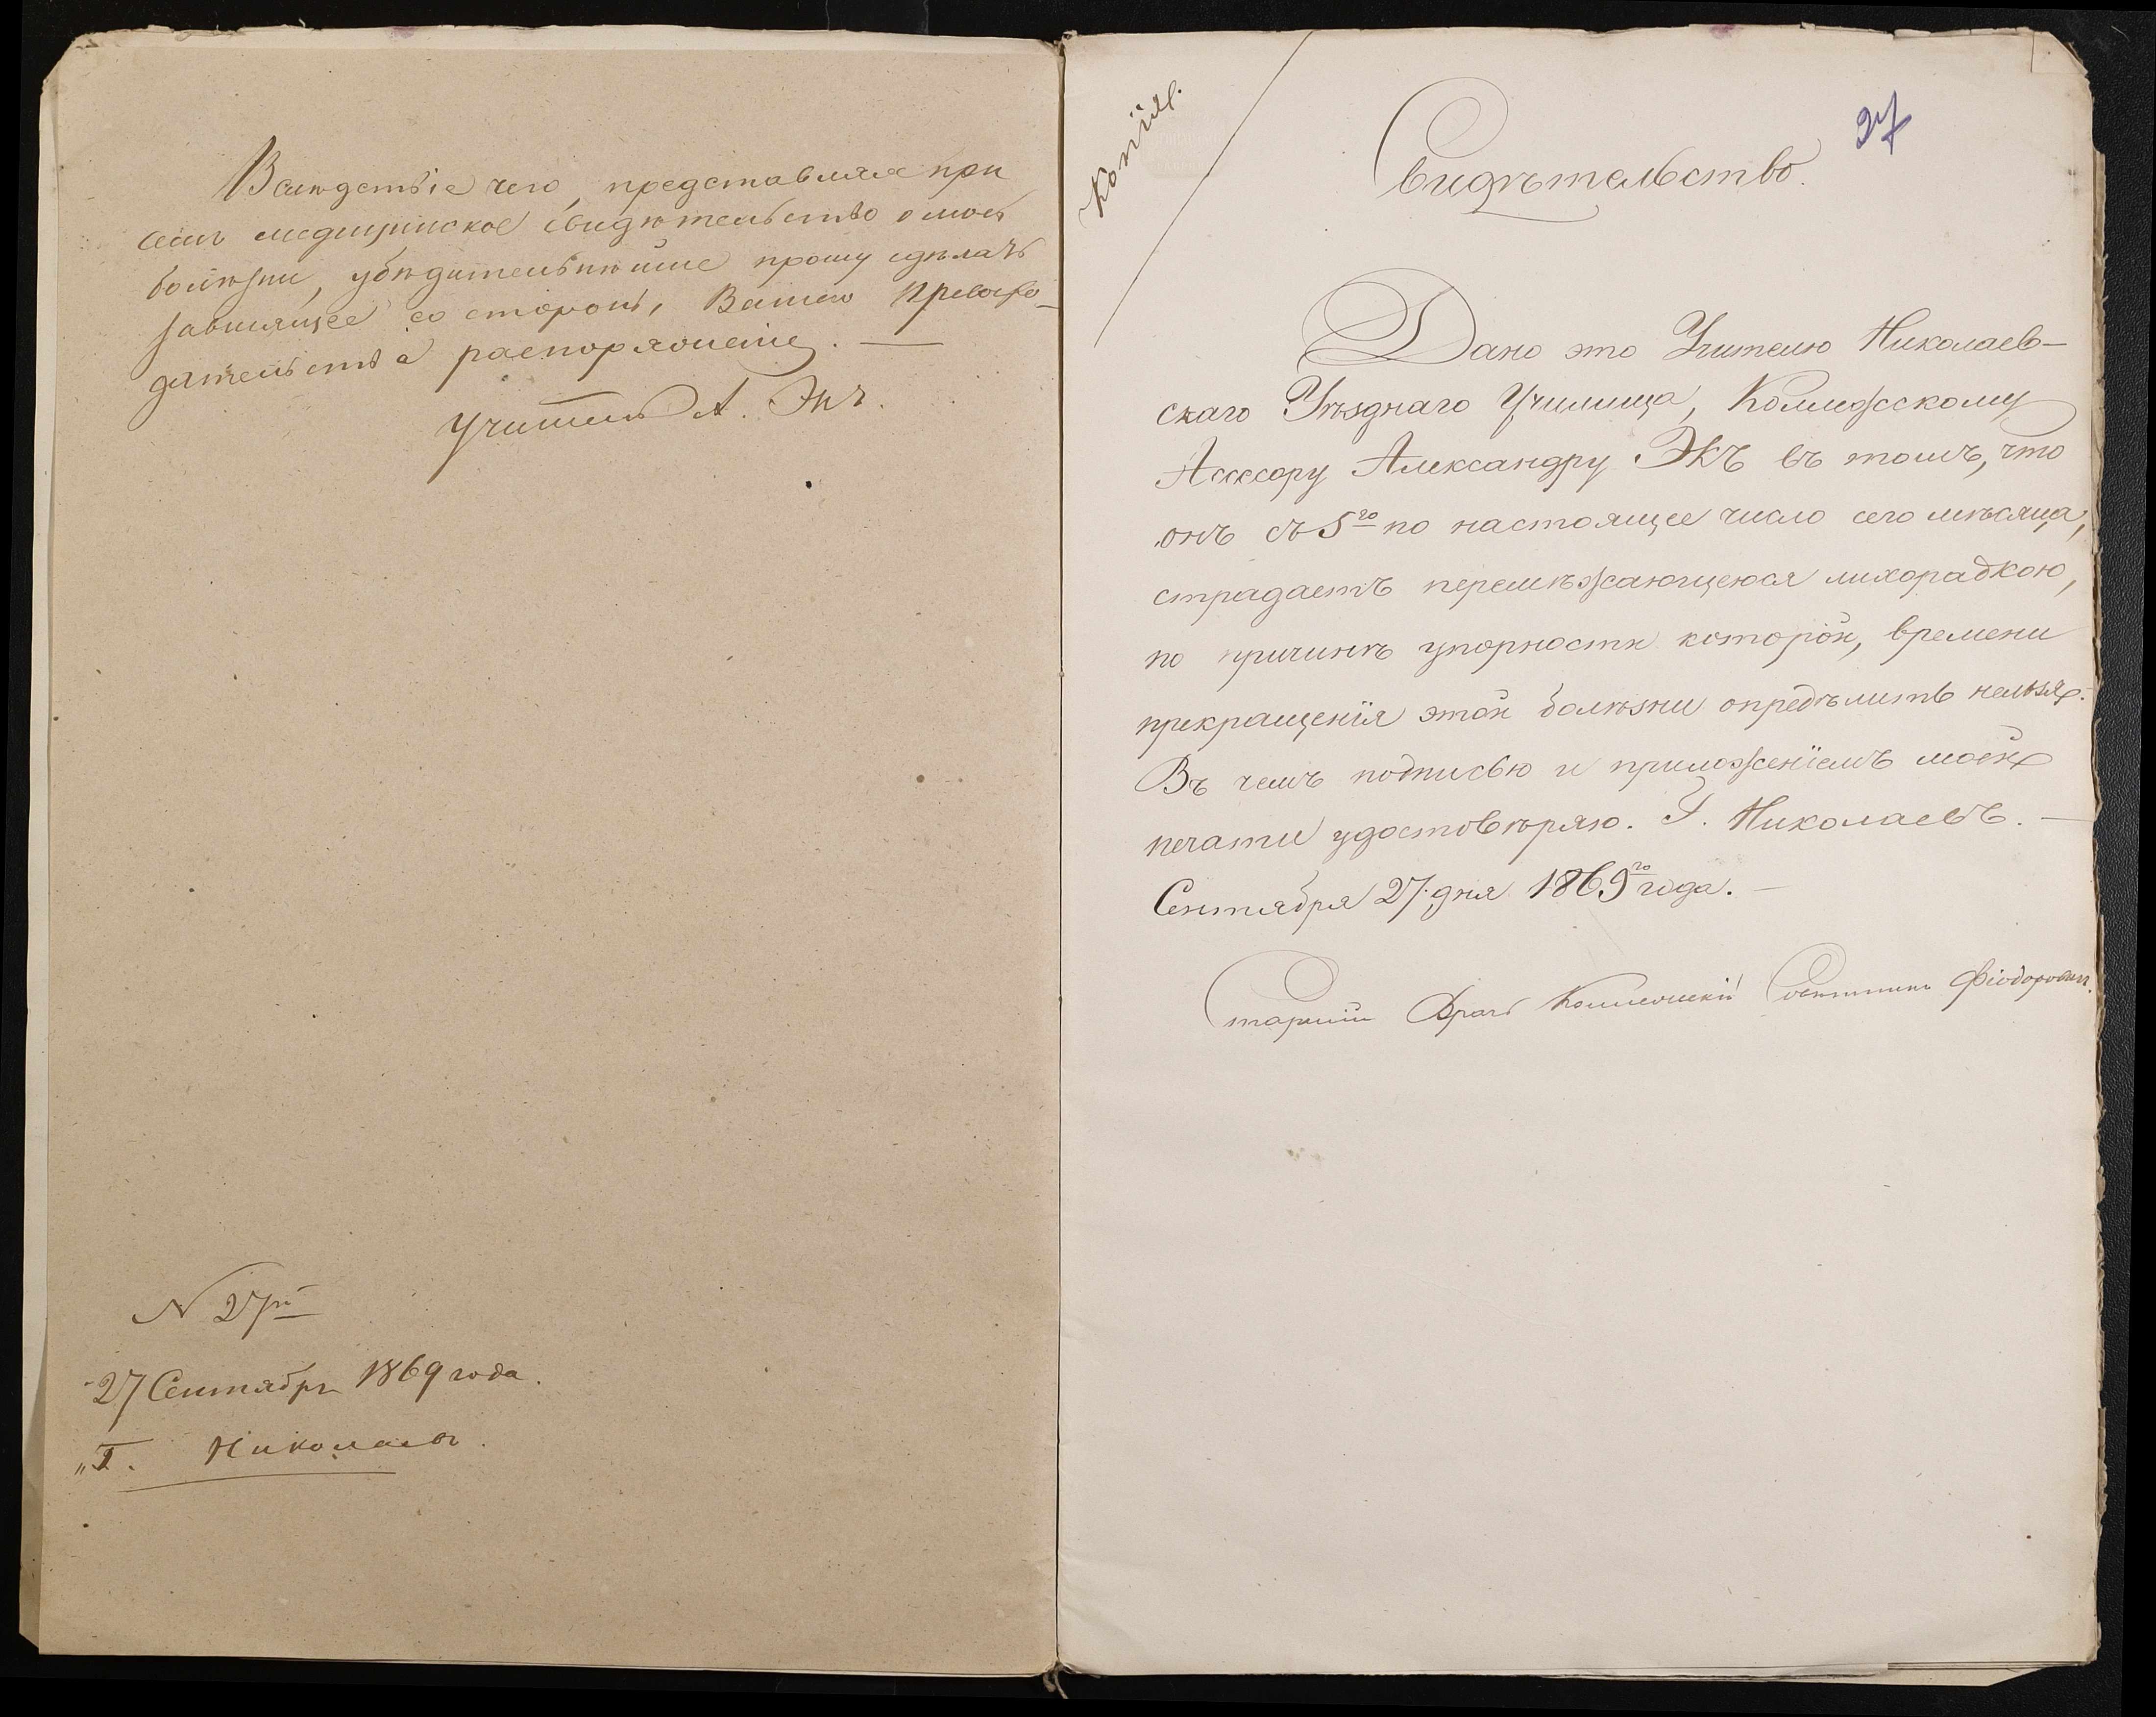 Вслѣдствіе чего, представляя при
семъ медицинское свидѣтельство о моей
болѣзни, убѣдительнѣйше прошу сдѣлать
зависящее со стороны Вашего Превосхо-
дительства распоряженіе. —
Учитель А. Экъ.
N 27й
27 Сентября 1869 года.
„Г. Николаевъ.
Копія.
27
Свидѣтельство.
Дано это Учителю Николаев-
скаго Уѣзднаго Училища, Коллежскому
Ассесору Александру Экъ въ томъ, что
онъ съ 5го по настоящее число сего мѣсяца,
страдаетъ перемѣжающеюся лихорадкою,
по причинѣ упорности которой, времени
прекращенія этой болѣзни опредѣлить нельзя.
Въ чемъ подписью и приложеніемъ моей
печати удостовѣряю. Г. Николаевъ. —
Сентября 27 дня 1869го года. —
Старшій Врачъ Коллежскій Совѣтникъ Фіодоровичъ.